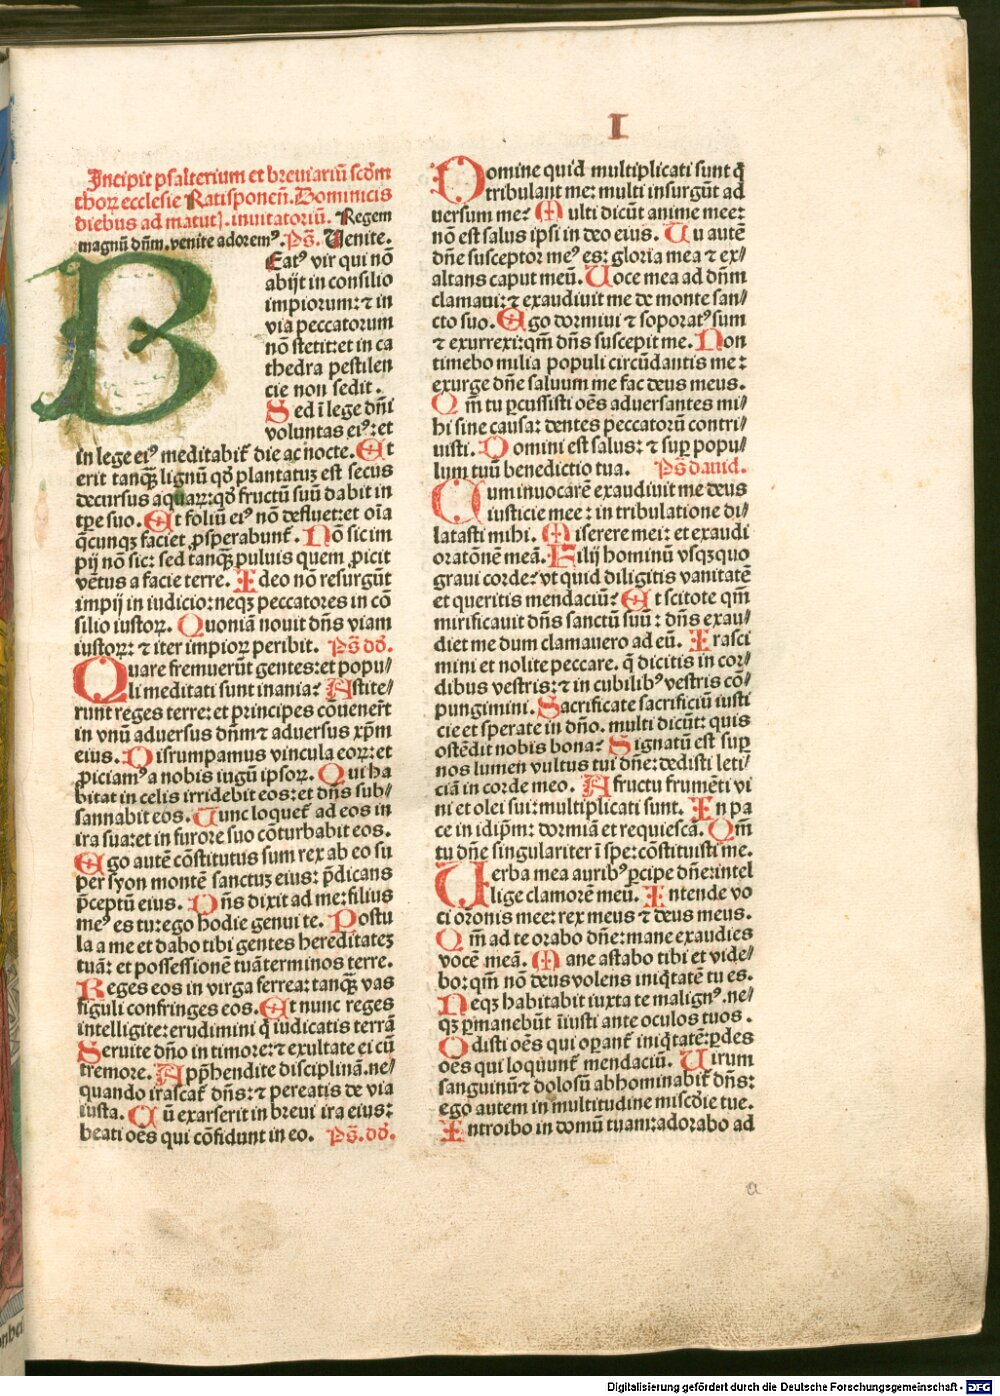 I
Incipit psalterium et breuiariū scḋm
choꝝ ecclesie Ratisponeñ. Dominicis
diebus ad matut᷒. inuitatoriū. Regem
magnū dñm. venite adoremꝰ. Ps̄. Uenite.
BEatꝰ vir qui nō
abijt in consilio
impiorum: ⁊ in
via peccatorum
nō stetit: et in ca
thedra pestilen
cie non sedit.
Sed ī lege dn̄i
voluntas eiꝰ: et
in lege eiꝰ meditabit᷒ die ac nocte. Et
erit tanqȝ lignū qḋ plantatuȝ est secus
decursus aquaꝝ: qḋ fructū suū dabit in
tp̄e suo. Et foliū eiꝰ nō defluet: et oīa
q̄cunqȝ faciet ꝓsperabunt᷒. Nō sic im
pij nō sic: sed tanqȝ puluis quem ꝓicit
vētus a facie terre. Ideo nō resurgūt
impij in iudicio: neqȝ peccatores in cō
silio iustoꝝ. Quoniā nouit dn̄s viam
iustoꝝ: ⁊ iter impioꝝ peribit. Ps̄ dd̄.
Quare fremuerūt gentes: et popu/
li meditati sunt inania? Astite/
runt reges terre: et principes cōuenerūt
in vnū aduersus dn̄m ⁊ aduersus xp̄m
eius. Disrumpamus vincula eoꝝ: et
ꝓiciamꝰ a nobis iugū ipsoꝝ. Qui ha
bitat in celis irridebit eos: et dn̄s sub/
sannabit eos. Tunc loquet᷒ ad eos in
ira sua: et in furore suo cōturbabit eos.
Ego autē cōstitutus sum rex ab eo su
per syon montē sanctuȝ eius: p̄dicans
p̄ceptū eius. Dn̄s dixit ad me: filius
meꝰ es tu: ego hodie genui te. Postu
la a me et dabo tibi gentes hereditateȝ
tuā: et possessionē tuā terminos terre.
Reges eos in virga ferrea: tanqȝ vas
figuli confringes eos. Et nunc reges
intelligite: erudimini q̄ iudicatis terrā
Seruite dn̄o in timore: ⁊ exultate ei cū
tremore. App̄hendite disciplinā. ne/
quando irascat᷒ dn̄s: ⁊ pereatis de via
iusta. Cū exarserit in breui ira eius:
beati oēs qui cōfidunt in eo. Ps̄. dd̄.
Domine quid multiplicati sunt q̄
tribulant me: multi insurgūt ad
uersum me? Multi dicūt anime mee:
nō est salus ipsi in deo eius. Tu autē
dn̄e susceptor meꝰ es: gloria mea ⁊ ex/
altans caput meū. Uoce mea ad dn̄m
clamaui: ⁊ exaudiuit me de monte san/
cto suo. Ego dormiui ⁊ soporatꝰ sum
⁊ exurrexi: qm̄ dn̄s suscepit me. Non
timebo milia populi circūdantis me:
exurge dn̄e saluum me fac deus meus.
Qm̄ tu ꝑcussisti oēs aduersantes mi/
hi sine causa: dentes peccatorū contri/
uisti. Domini est salus: ⁊ suꝑ popu/
lum tuū benedictio tua. Ps̄ dauid.
Cum inuocarē exaudiuit me deus
iusticie mee: in tribulatione di/
latasti mihi. Miserere mei: et exaudi
oratōnē meā. Filij hominū vsqȝquo
graui corde? vt quid diligitis vanitatē
et queritis mendaciū? Et scitote qm̄
mirificauit dn̄s sanctū suū: dn̄s exau/
diet me dum clamauero ad eū. Irasci
mini et nolite peccare. q̄ dicitis in cor/
dibus vestris: ⁊ in cubilibꝰ vestris cō/
pungimini. Sacrificate sacrificiū iusti
cie et sperate in dn̄o. multi dicūt: quis
ostēdit nobis bona? Signatū est suꝑ
nos lumen vultus tui dn̄e: dedisti leti/
ciā in corde meo. A fructu frumēti vi
ni et olei sui: multiplicati sunt. In pa
ce in idip̄m: dormiā et requiescā. Qm̄
tu dn̄e singulariter ī spe: cōstituisti me.
Uerba mea auribꝰ ꝑcipe dn̄e: intel
lige clamorē meū. Intende vo
ci or̄onis mee: rex meus ⁊ deus meus.
Qm̄ ad te orabo dn̄e: mane exaudies
vocē meā. Mane astabo tibi et vide/
bo: qm̄ nō deus volens iniq̇tatē tu es.
Neqȝ habitabit iuxta te malignꝰ. ne/
qȝ ꝑmanebūt īiusti ante oculos tuos.
Odisti oēs qui oꝑant᷒ iniq̇tatē: ꝑdes
oēs qui loquunt᷒ mendaciū. Uirum
sanguinū ⁊ dolosū abhominabit᷒ dn̄s:
ego autem in multitudine miscḋie tue.
Introibo in domū tuam: adorabo ad
a
Digitalisierung gefördert durch die Deutsche Forschungsgemeinschaft - DFG